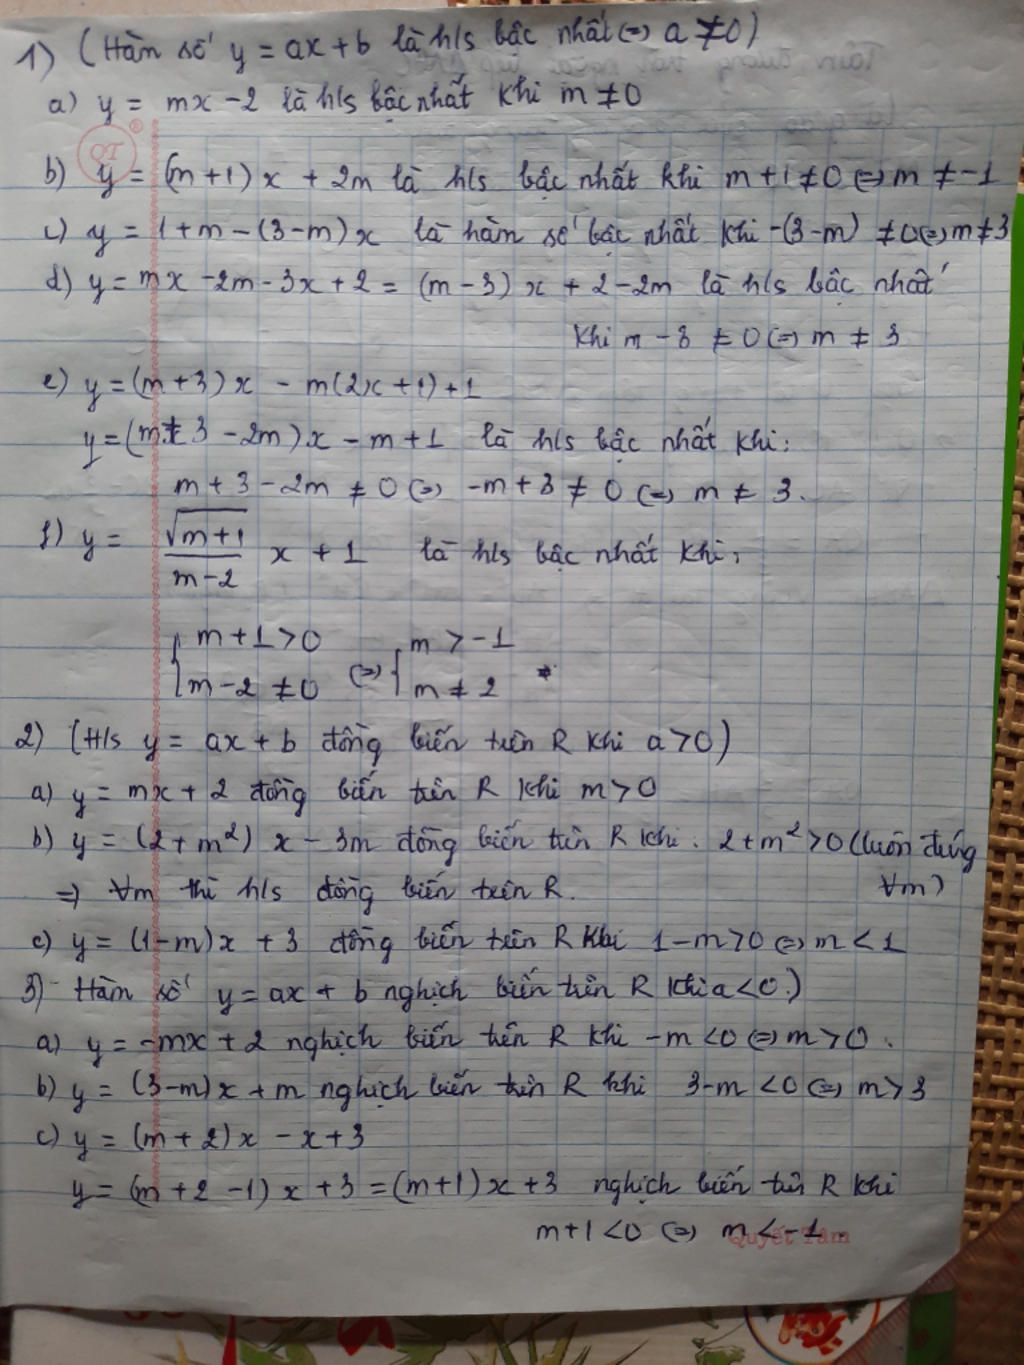 1) (Hàm số y = ax + b là h/s bậc nhất (=) a ≠ 0)
a) y = mx - 2 là h/s bậc nhất khi m ≠ 0
QT ®
b) y = (m+1) x + 2m là h/s bậc nhất khi m + 1 ≠ 0 (=) m ≠ -1
c) y = 1 + m - (3-m) x là hàm số bậc nhất khi -(3-m) ≠ 0 (=) m ≠ 3
d) y = mx - 2m - 3x + 2 = (m-3) x + 2 - 2m là h/s bậc nhất
khi m - 3 ≠ 0 (=) m ≠ 3
e) y = (m+3) x - m(2x+1) + 1
y = (m + 3 - 2m) x - m + 1 là h/s bậc nhất khi:
m + 3 - 2m ≠ 0 (=) -m + 3 ≠ 0 (=) m ≠ 3.
f) y = √(m+1)/(m-2) x + 1 là h/s bậc nhất khi:
{ m + 1 > 0 (=) { m > -1
{ m - 2 ≠ 0 { m ≠ 2
2) (H/s y = ax + b đồng biến trên R khi a > 0)
a) y = mx + 2 đồng biến trên R khi m > 0
b) y = (2 + m²) x - 3m đồng biến trên R khi: 2 + m² > 0 (luôn đúng
=) ∀m thì h/s đồng biến trên R. ∀m)
c) y = (1-m)x + 3 đồng biến trên R khi 1 - m > 0 (=) m < 1
3) Hàm số y = ax + b nghịch biến trên R khi a < 0.)
a) y = -mx + 2 nghịch biến trên R khi -m < 0 (=) m > 0.
b) y = (3-m)x + m nghịch biến trên R khi 3-m < 0 (=) m > 3
c) y = (m + 2)x - x + 3
y = (m + 2 - 1) x + 3 = (m+1) x + 3 nghịch biến trên R khi
m + 1 < 0 (=) m < -1.
Quyết Tâm